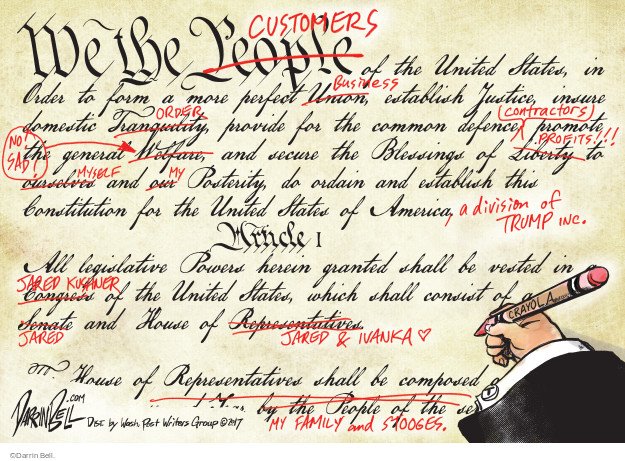 CUSTOMERS
We the People
of the United States, in
Business
Order to form a more perfect Union, establish Justice, insure
ORDER
contractors
domestic Tranquility, provide for the common defence, promote
NO! SAD!
PROFITS!!!
the general Welfare, and secure the Blessings of Liberty to
MYSELF
MY
ourselves and our Posterity, do ordain and establish this
Constitution for the United States of America, a division of
TRUMP INC.
Article I
All legislative Powers herein granted shall be vested in
JARED KUSHNER
Congress of the United States, which shall consist of a
Senate and House of Representatives.
JARED
JARED & IVANKA ♡
CRAYOLA
House of Representatives shall be composed
by the People of the
MY FAMILY and STOOGES.
DARRINBELL.COM
DIST. by Wash. Post Writers Group ©2017
©Darrin Bell.